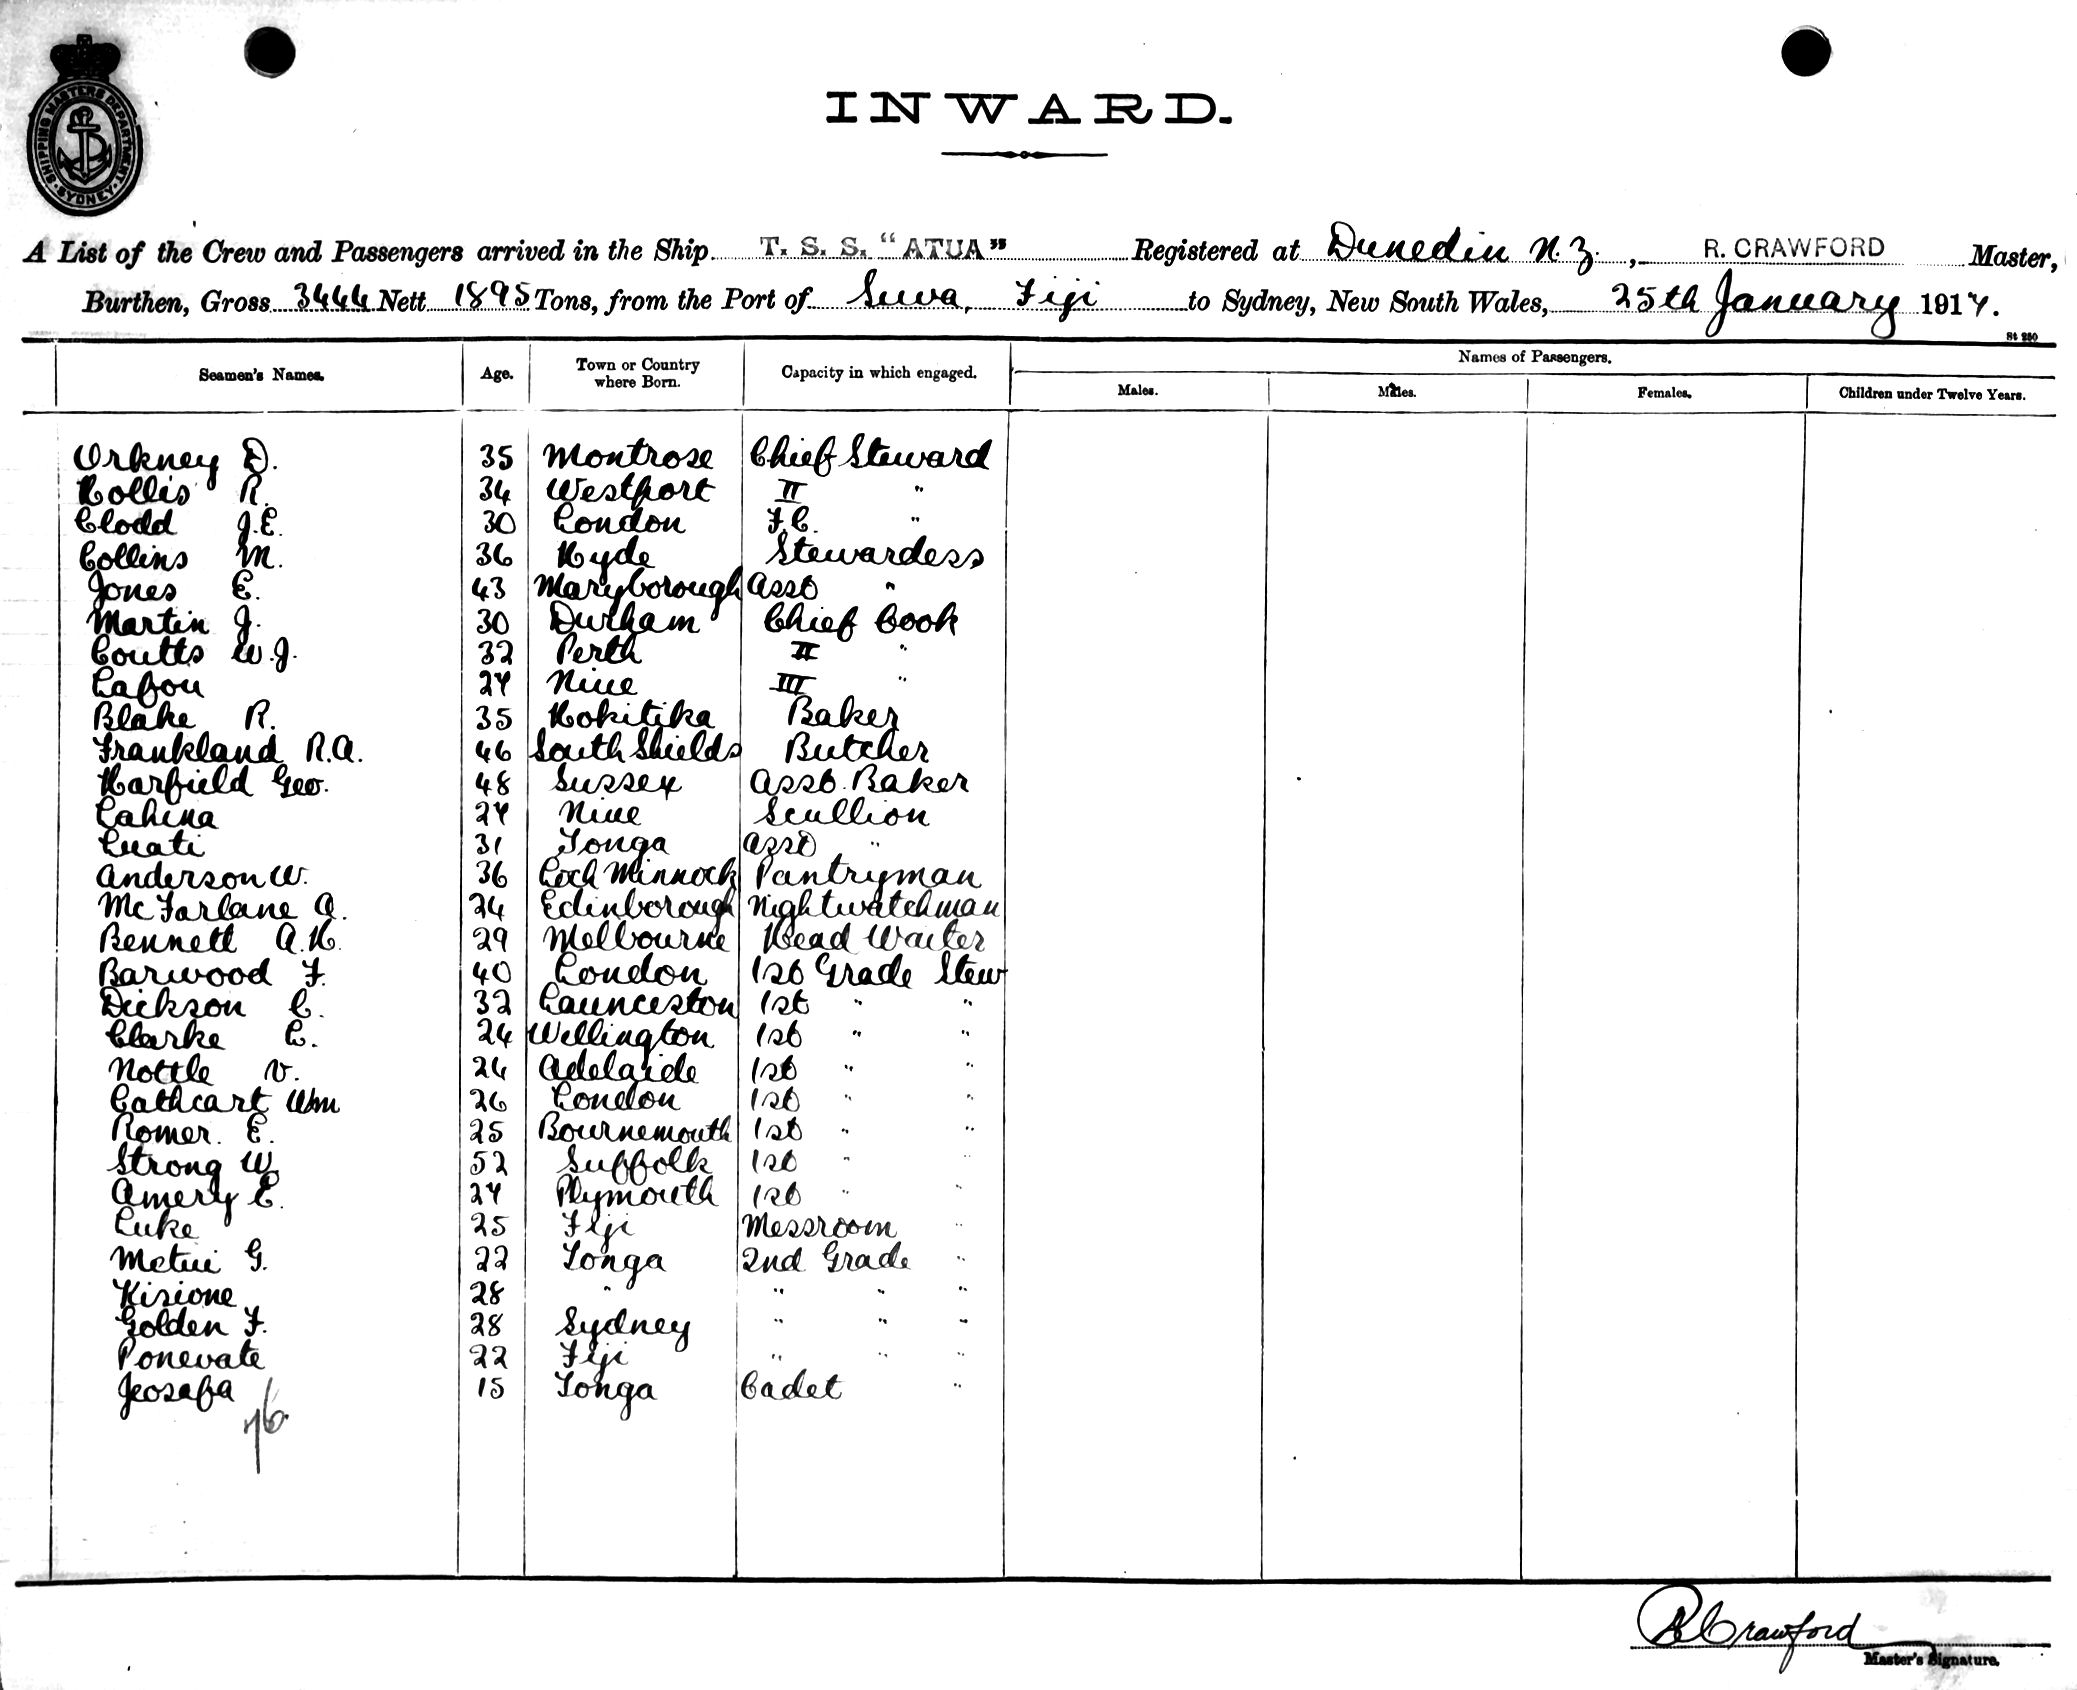 SHIPPING MASTERS DEPARTMENT. SYDNEY
INWARD.
A List of the Crew and Passengers arrived in the Ship T. S. S. "ATUA" Registered at Dunedin N.Z., R. CRAWFORD Master,
Burthen, Gross 3444 Nett 1895 Tons, from the Port of Suva, Fiji to Sydney, New South Wales, 25th January 1917.
St 250
Seamen's Names. Age. Town or Country where Born. Capacity in which engaged. Names of Passengers.
Males. Males. Females. Children under Twelve Years.
Orkney D. 35 Montrose Chief Steward
Hollis R. 34 Westport II "
Clodd J.E. 30 London F.C. "
Collins M. 36 Hyde Stewardess
Jones E. 43 Maryborough Asst "
Martin J. 30 Durham Chief Cook
Coutts W.J. 32 Perth II "
Lafou 27 Niue III "
Blake R. 35 Hokitika Baker
Frankland R.A. 46 South Shields Butcher
Harfield Geo. 48 Sussex Asst. Baker
Lahina 27 Niue Scullion
Luati 31 Tonga Asst "
Anderson W. 36 Loch Minnock Pantryman
McFarlane A. 24 Edinborough Nightwatchman
Bennett A.H. 29 Melbourne Head Waiter
Barwood F. 40 London 1st Grade Stew
Dickson C. 32 Launceston 1st " "
Clarke C. 24 Wellington 1st " "
Nottle V. 24 Adelaide 1st " "
Cathcart Wm 26 London 1st " "
Romer. E. 25 Bournemouth 1st " "
Strong W. 52 Suffolk 1st " "
Amery E. 27 Plymouth 1st " "
Luke 25 Fiji Messroom "
Metui G. 22 Tonga 2nd Grade "
Kisione 28 " " " "
Golden F. 28 Sydney " " "
Ponevate 22 Fiji " " "
Jeosafa 15 Tonga Cadet "
76
R Crawford
Master's Signature.